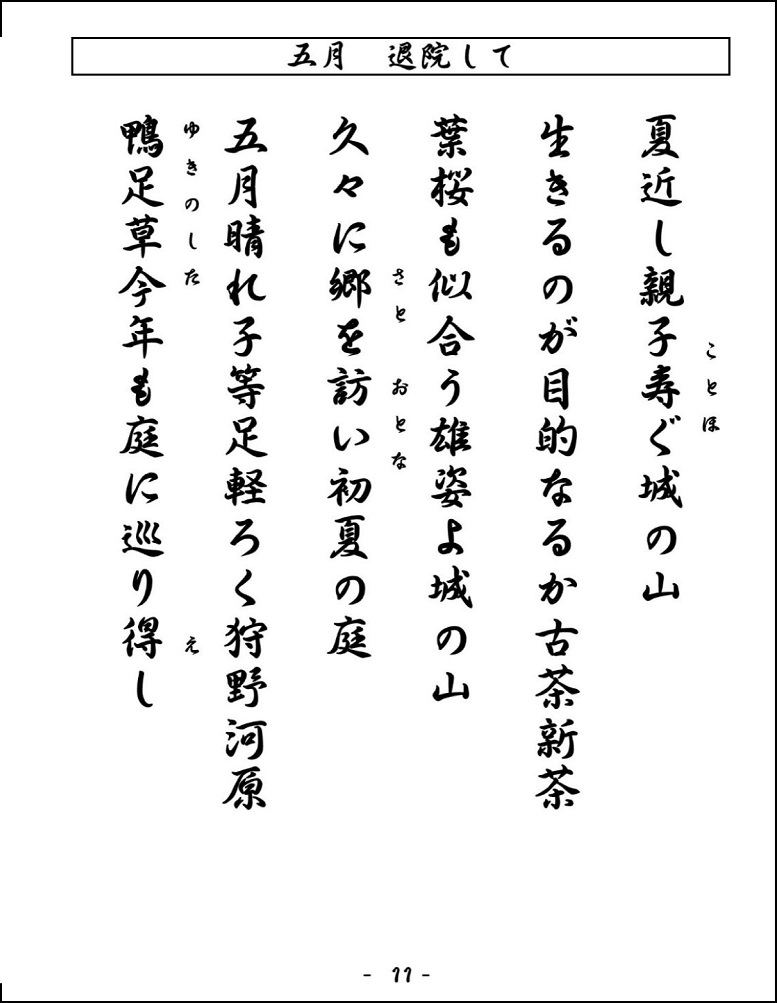 五月　退院して
夏近し親子寿ぐ城の山
ことほ
生きるのが目的なるか古茶新茶
葉桜も似合う雄姿よ城の山
久々に郷を訪い初夏の庭
さと　おとな
五月晴れ子等足軽ろく狩野河原
鴨足草今年も庭に巡り得し
ゆきのした　え
- 11 -